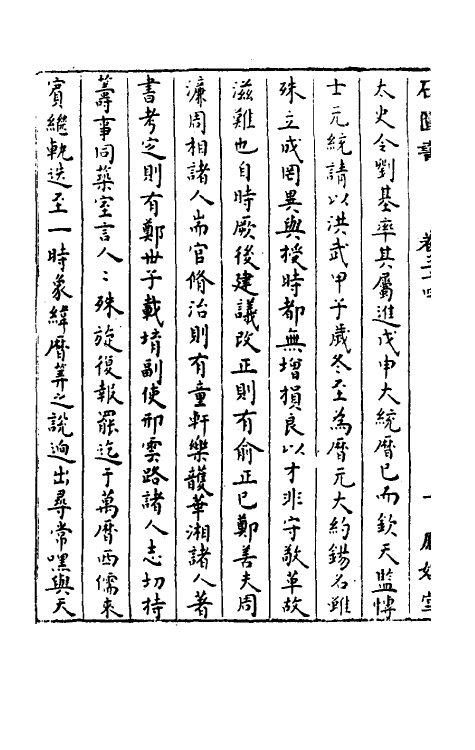 石匱書 卷三十四 一 鳳嬉堂
太史令劉基率其屬進戊申大統曆已而欽天監博
士元統請以洪武甲子歲冬至為曆元大約錫名雖
殊立成罔異與授時都無增損良以才非守敬革故
滋難也自時厥後建議改正則有俞正已鄭善夫周
濂周相諸人耑官脩治則有童軒樂頀華湘諸人著
書考定則有鄭世子載堉副使邢雲路諸人志切持
籌事同築室言人〻殊旋復報罷迄于萬曆西儒來
賓繼軌迭至一時象緯曆筭之說逈出尋常嘿與天